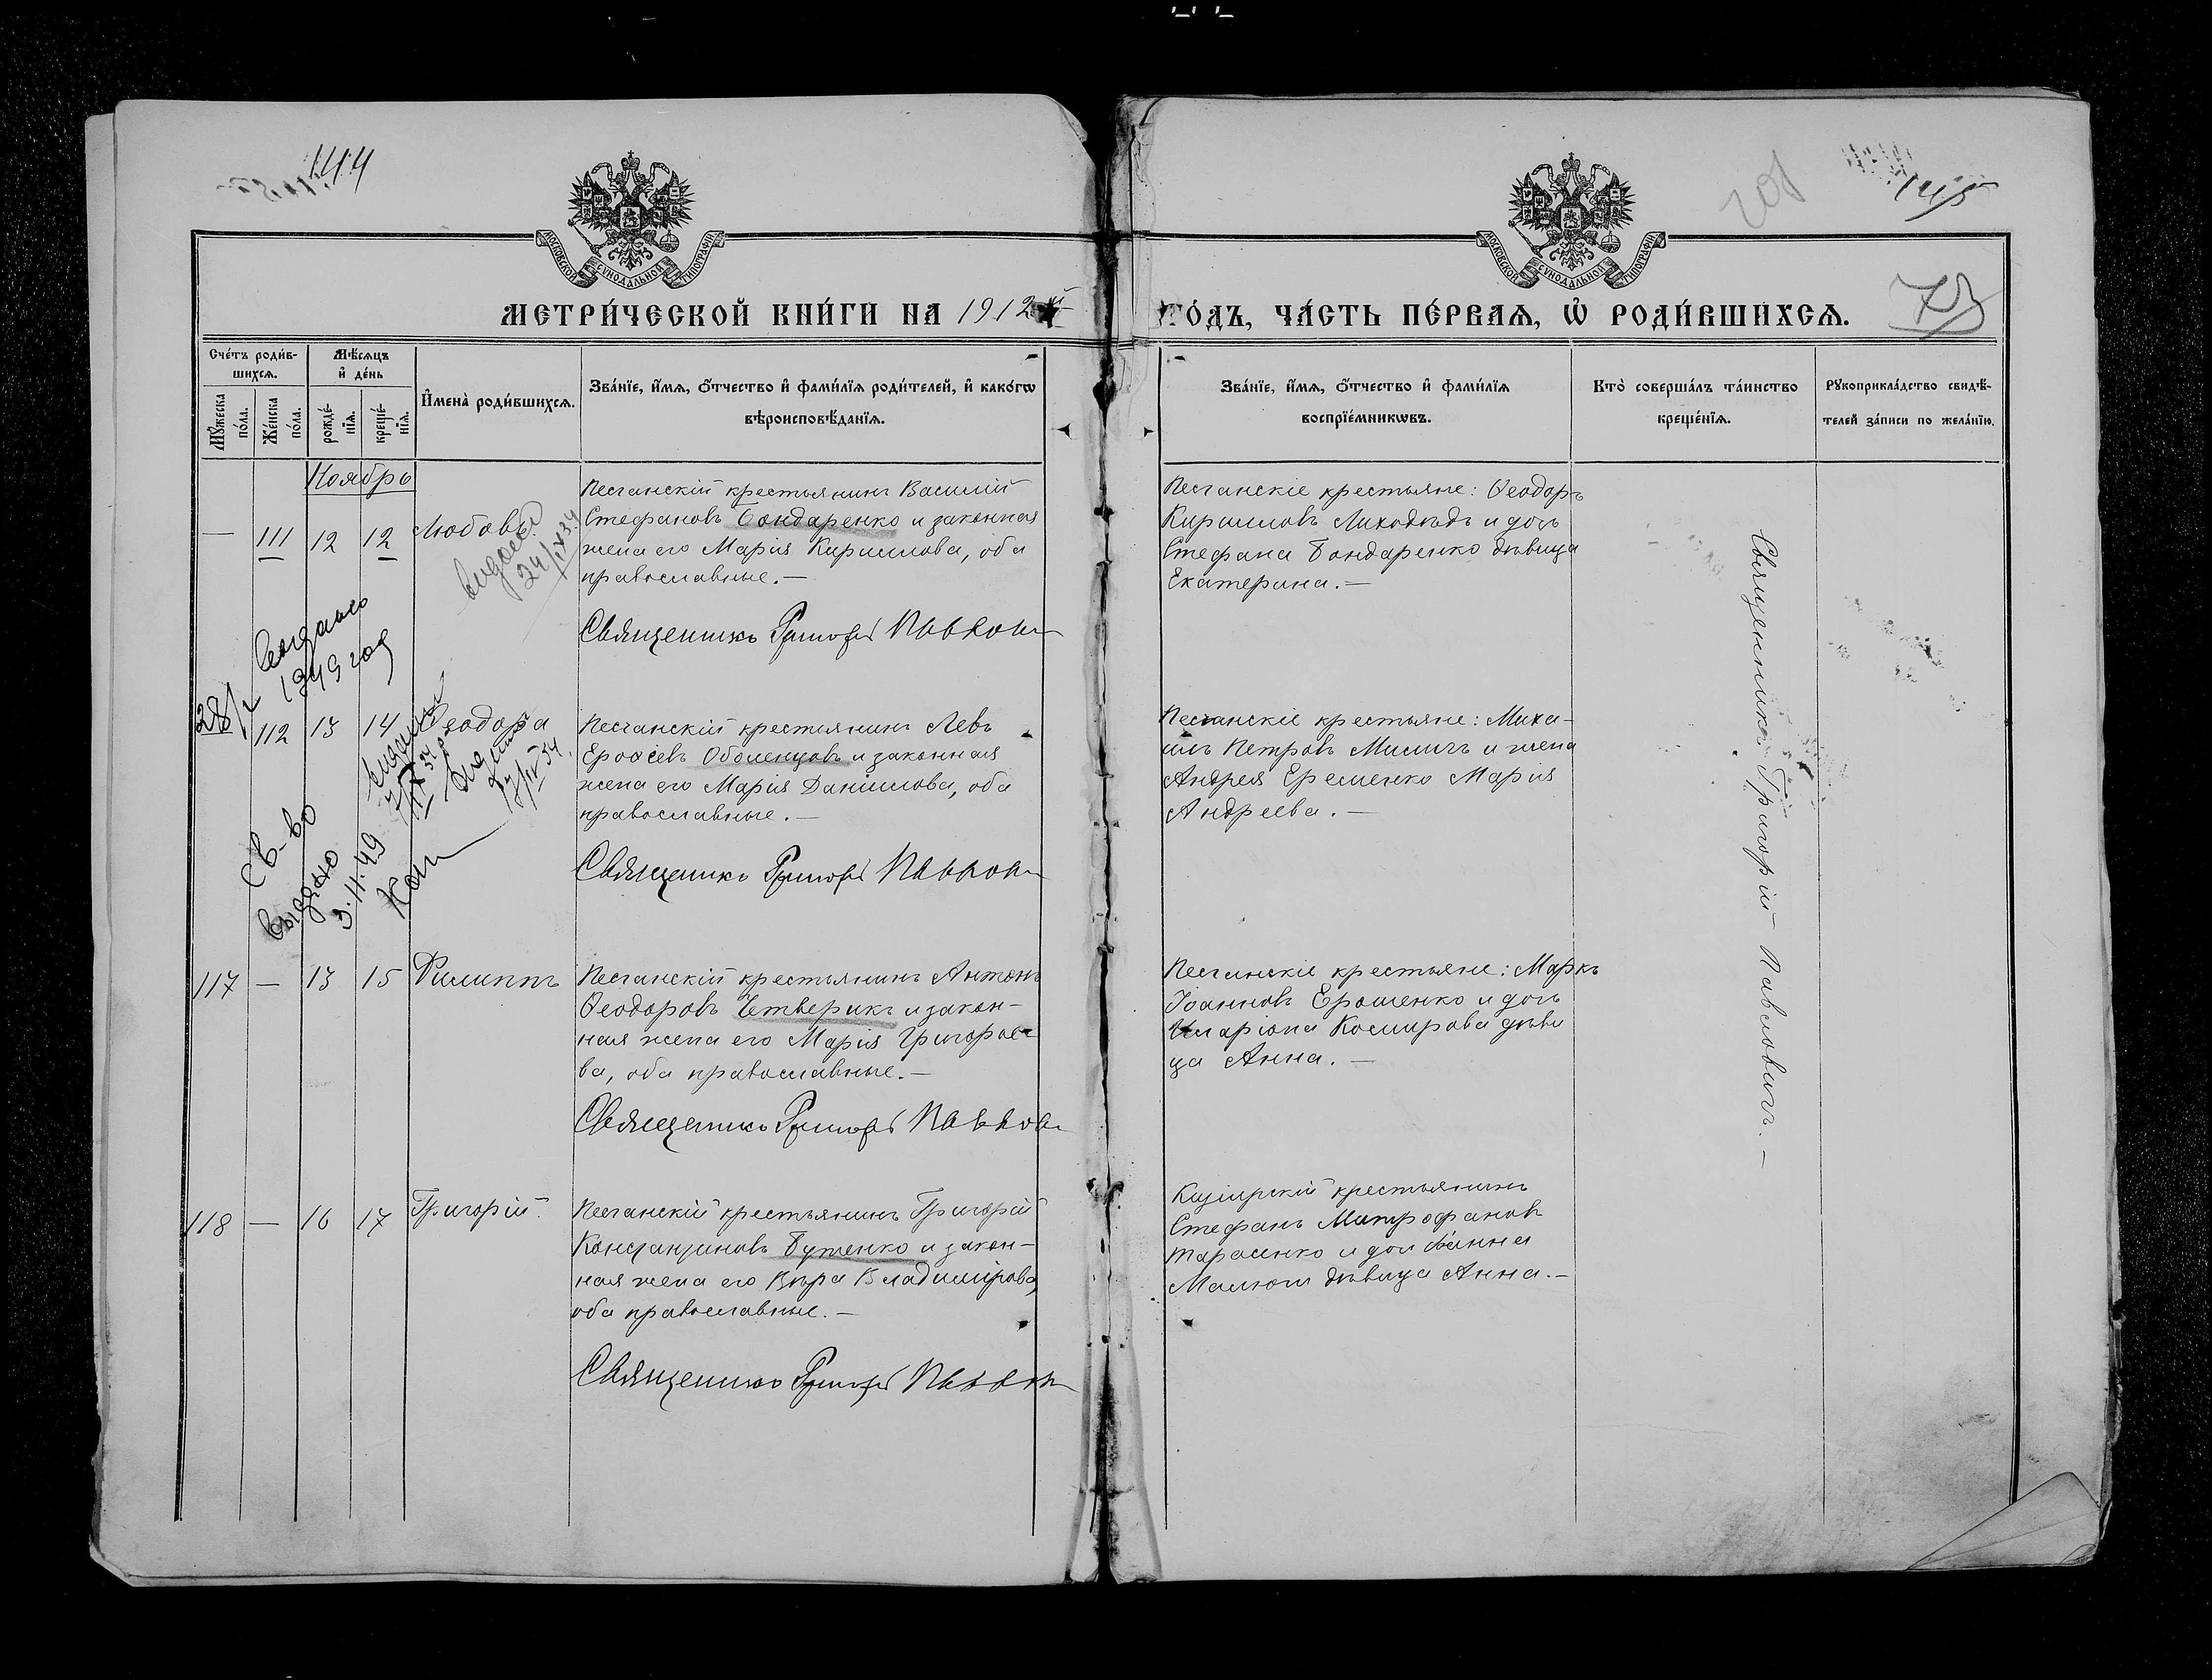 144
201
145
МОСКОВСКОЙ СѴНОДАЛЬНОЙ ТИПОГРАФІИ
МОСКОВСКОЙ СѴНОДАЛЬНОЙ ТИПОГРАФІИ
МЕТРИ́ЧЕСКОЙ КНИ́ГИ НА 1912
ГО́ДЪ, ЧА́СТЬ ПЕ́РВАѦ, Ѡ҆ РОДИ́ВШИХСѦ.
73
Сче́тъ роди́в-
шихсѧ.
Мѣ́сѧцъ
и҆ де́нь
Мꙋ́жеска
по́ла.
Же́нска
по́ла.
рожде́-
нїѧ.
креще́-
нїѧ.
И҆мена̀ роди́вшихсѧ.
Зва́нїе, и҆́мѧ, ѻ҆́тчество и҆ фами́лїѧ роди́телей, и҆ како́гѡ
вѣроисповѣ́данїѧ.
Зва́нїе, и҆́мѧ, ѻ҆́тчество и҆ фами́лїѧ
воспрїе́мникѡвъ.
Кто̀ соверша́лъ та́инство
креще́нїѧ.
Рꙋкоприкла́дство свидѣ́-
телей за́писи по жела́нїю.
Ноябрь
— 111 12 12 Любовь
Песчанскій крестьянинъ Василій
Стефановъ Бондаренко и законная
жена его Марія Кириллова, оба
православные.—
Священникъ Григорій Павлов
Песчанскіе крестьяне: Ѳеодоръ
Кирилловъ Лиходѣдъ и дочь
Стефана Бондаренко дѣвица
Екатерина.—
Священникъ Григорій Павловичъ.—
24/IX 34
Выдано
1949 год
28/
112 13 14 Ѳеодора
Песчанскій крестьянинъ Левъ
Ероѳеевъ Оболенцовъ и законная
жена его Марія Даніилова, оба
православные.—
Священникъ Григорій Павлов
Св-во
выдано
3.II.49
Песчанскіе крестьяне: Миха-
илъ Петровъ Мисичъ и жена
Андрея Еременко Марія
Андреева.—
117 — 13 15 Филиппъ
Песчанскій крестьянинъ Антонъ
Ѳеодоровъ Четверикъ и закон-
ная жена его Марія Григорье-
ва, оба православные.—
Священникъ Григорій Павлов
Песчанскіе крестьяне: Маркъ
Іоанновъ Ерошенко и дочь
Иларіона Косцирова дѣви
ца Анна.—
118 — 16 17 Григорій
Песчанскій крестьянинъ Григорій
Константиновъ Бутенко и закон-
ная жена его Вѣра Владимірова,
оба православные.—
Священникъ Григорій Павлов
крестьянинъ
Стефанъ Митрофановъ
Тарасенко и дочь
дѣвица Анна.—